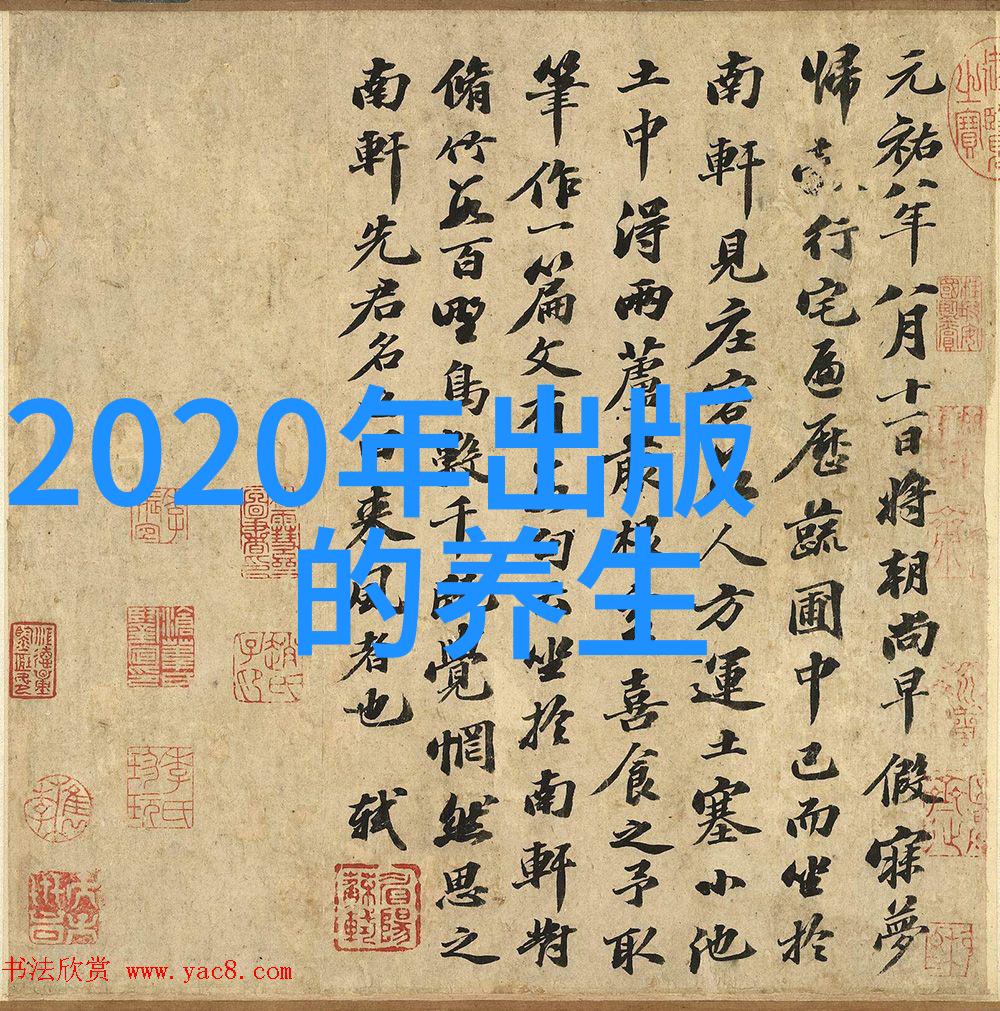 元祐八年八月十一日將朝尚早假寐夢
歸縠行宅遍歷蔬圃中已而坐於
南軒見莊客數人方運土塞小池
土中得兩蘆菔根客喜食之予取
筆作一篇文有數句云坐於南軒對
脩竹數百野鳥數千既覺惘然思之
南軒先君名之曰來風者也 軾
2020年出版
的养生
书法欣赏 www.yac8.com